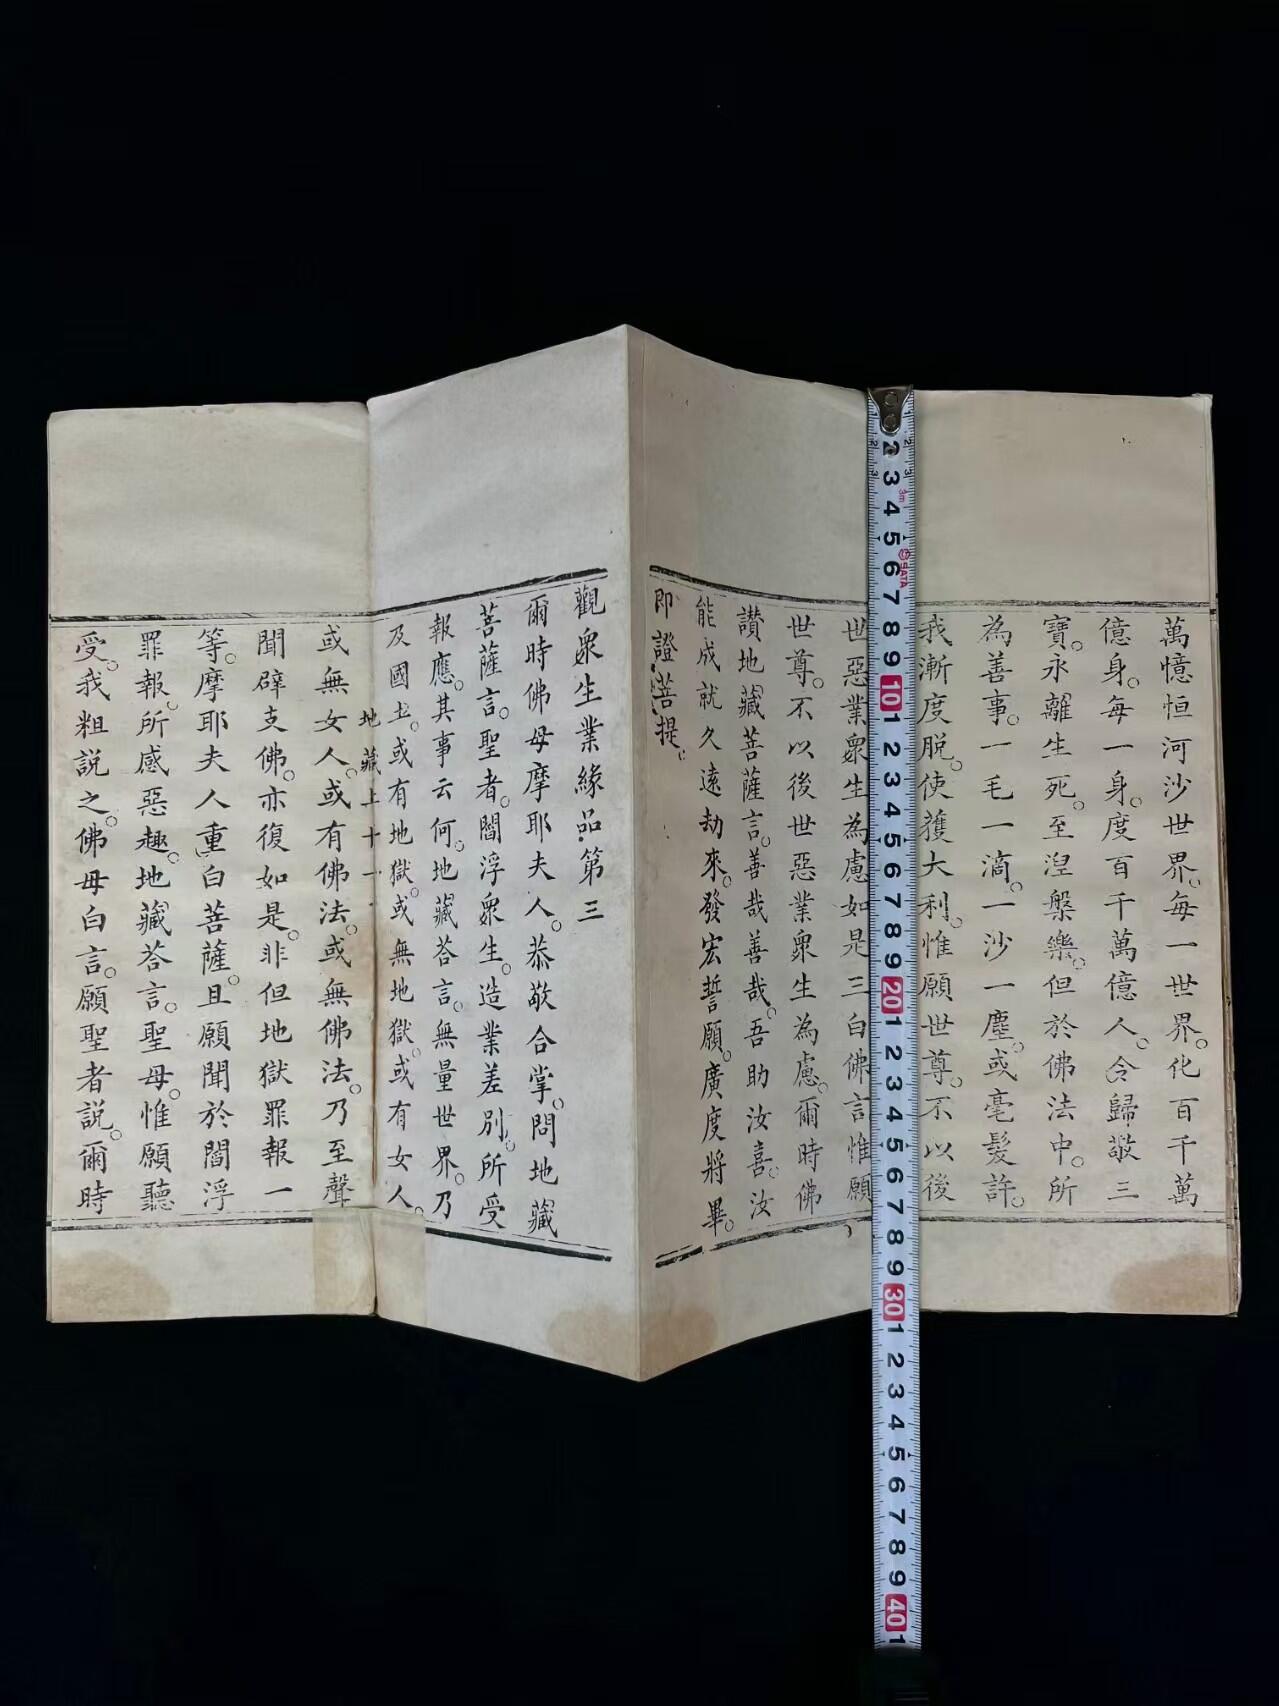 萬憶恒河沙世界。每一世界。化百千萬
億身。每一身。度百千萬億人。令歸敬三
寶。永離生死。至湼槃樂。但於佛法中。所
為善事。一毛一滴。一沙一塵。或毫髮許。
我漸度脫。使獲大利。惟願世尊。不以後
世惡業衆生為慮如是三白佛言惟願
世尊。不以後世惡業衆生為慮。爾時佛
讚地藏菩薩言。善哉善哉。吾助汝喜。汝
能成就久遠劫來。發宏誓願。廣度將畢。
即證菩提。
觀衆生業緣品第三
爾時佛母摩耶夫人。恭敬合掌。問地藏
菩薩言。聖者。閻浮衆生。造業差別。所受
報應。其事云何。地藏荅言。無量世界。乃
及國土。或有地獄。或無地獄。或有女人。
地藏上十一
或無女人。或有佛法。或無佛法。乃至聲
聞辟支佛。亦復如是。非但地獄罪報一
等。摩耶夫人重白菩薩。且願聞於閻浮
罪報。所感惡趣。地藏荅言。聖母。惟願聽
受。我粗說之。佛母白言。願聖者說。爾時
2 3 4 5 6 7 8 9 10 1 2 3 4 5 6 7 8 9 20 1 2 3 4 5 6 7 8 9 30 1 2 3 4 5 6 7 8 9 40 1
3m
SATA